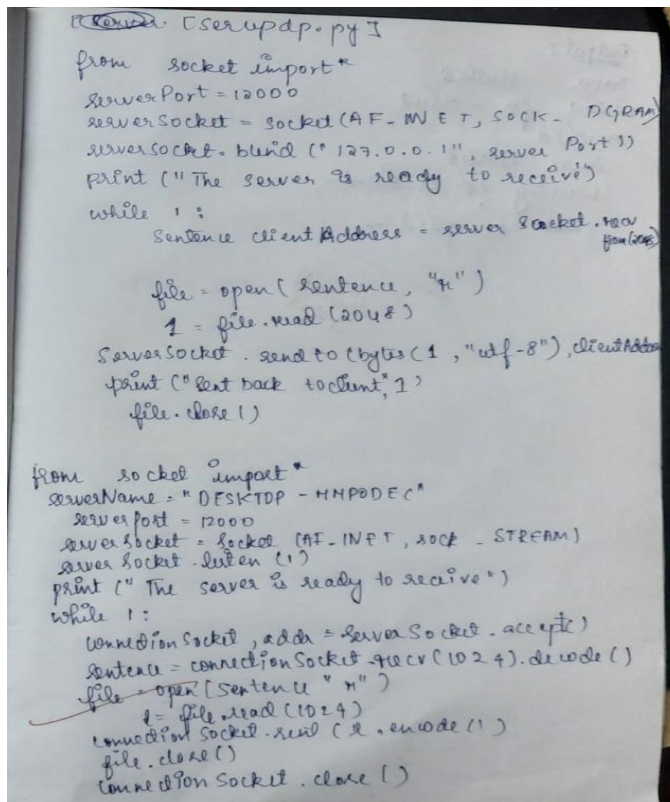 [serupdp.py]
from socket import*
serverPort = 12000
serverSocket = socket(AF-INET, SOCK- DGRAM)
serversocket.bind ("127.0.0.1", server Port))
print ("The server is ready to receive")
while 1:
Sentence clientAddress = server Socket.recv
from(2048)
file = open( sentence, "r")
1 = file.read (2048)
ServerSocket. send to (bytes (1, "utf-8"), clientAddre
print ("sent back toclient", 1)
file.close()
from socket import*
serverName = "DESKTDP - HMPODEC"
serverport = 12000
serversocket = Socket (AF-INET, sock - STREAM)
server Socket. listen (1)
print (" The server is ready to receive")
while 1:
connection Socket, addr = Server Socket. accept()
sentence = connectionSocket.recv (1024).decode()
file = open (sentence "r")
l = file.read (1024)
connection Socket. send (l.encode ()
file.close()
connection Socket. close ()